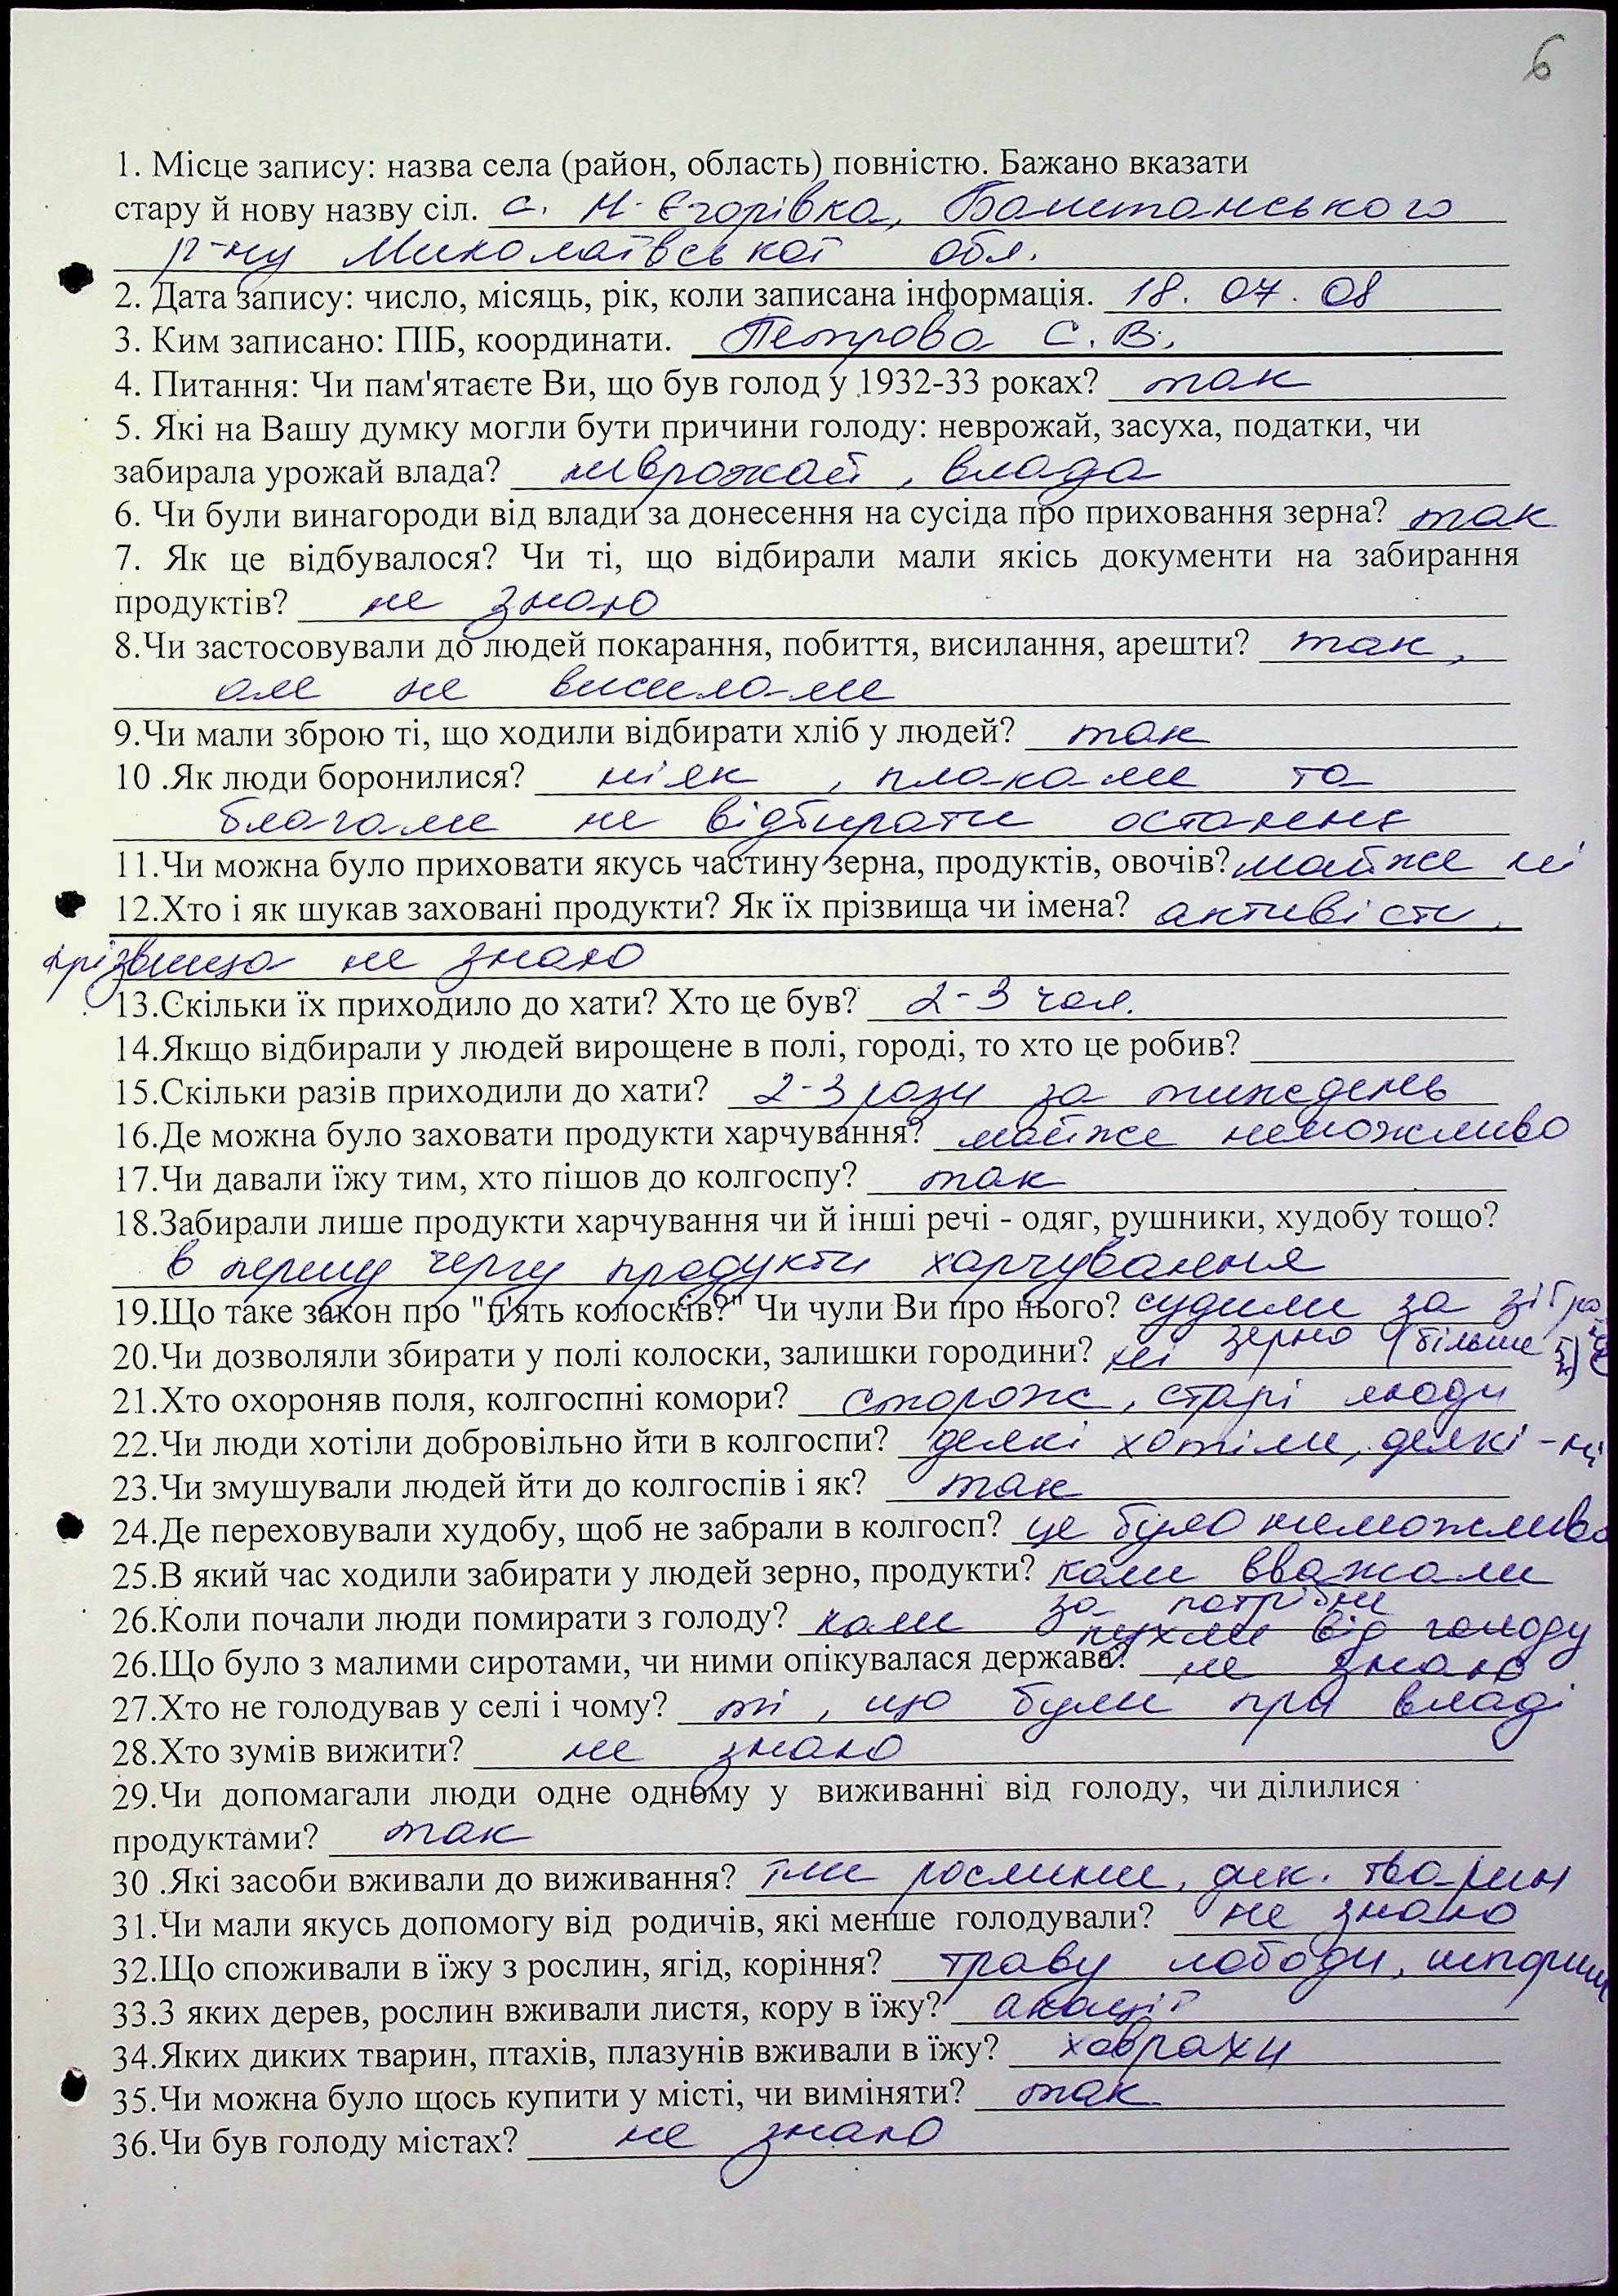 6
1. Місце запису: назва села (район, область) повністю. Бажано вказати
стару й нову назву сіл. с. Н-Єгорівка, Баштанського
р-ну Миколаївської обл.
2. Дата запису: число, місяць, рік, коли записана інформація. 18. 07. 08
3. Ким записано: ПІБ, координати. Петрова С. В.
4. Питання: Чи пам'ятаєте Ви, що був голод у 1932-33 роках? так
5. Які на Вашу думку могли бути причини голоду: неврожай, засуха, податки, чи
забирала урожай влада? неврожай, влада
6. Чи були винагороди від влади за донесення на сусіда про приховання зерна? так
7. Як це відбувалося? Чи ті, що відбирали мали якісь документи на забирання
продуктів? не знаю
8.Чи застосовували до людей покарання, побиття, висилання, арешти? так,
але не висилали
9.Чи мали зброю ті, що ходили відбирати хліб у людей? так
10 .Як люди боронилися? ніяк, плакали та
благали не відбирати останнє
11.Чи можна було приховати якусь частину зерна, продуктів, овочів? майже ні
12.Хто і як шукав заховані продукти? Як їх прізвища чи імена? активісти,
прізвища не знаю
13.Скільки їх приходило до хати? Хто це був? 2-3 чол.
14.Якщо відбирали у людей вирощене в полі, городі, то хто це робив?
15.Скільки разів приходили до хати? 2-3 рази за тиждень
16.Де можна було заховати продукти харчування? майже неможливо
17.Чи давали їжу тим, хто пішов до колгоспу? так
18.Забирали лише продукти харчування чи й інші речі - одяг, рушники, худобу тощо?
в першу чергу продукти харчування
19.Що таке закон про "п'ять колосків?" Чи чули Ви про нього? судили за
зерно (більше
20.Чи дозволяли збирати у полі колоски, залишки городини? ні
21.Хто охороняв поля, колгоспні комори? сторож, старі люди
22.Чи люди хотіли добровільно йти в колгоспи? деякі хотіли, деякі - ні
23.Чи змушували людей йти до колгоспів і як? так
24.Де переховували худобу, щоб не забрали в колгосп? це було неможливо
25.В який час ходили забирати у людей зерно, продукти? коли вважали
за потрібне
26.Коли почали люди помирати з голоду? коли пухли від голоду
26.Що було з малими сиротами, чи ними опікувалася держава? не знаю
27.Хто не голодував у селі і чому? ті, що були при владі
28.Хто зумів вижити? не знаю
29.Чи допомагали люди одне одному у виживанні від голоду, чи ділилися
продуктами? так
30 .Які засоби вживали до виживання? їли рослини, дик. тварин
31.Чи мали якусь допомогу від родичів, які менше голодували? не знаю
32.Що споживали в їжу з рослин, ягід, коріння? траву лободи, шпориш
33.З яких дерев, рослин вживали листя, кору в їжу? акації
34.Яких диких тварин, птахів, плазунів вживали в їжу? ховрахи
35.Чи можна було щось купити у місті, чи виміняти? так
36.Чи був голоду містах? не знаю